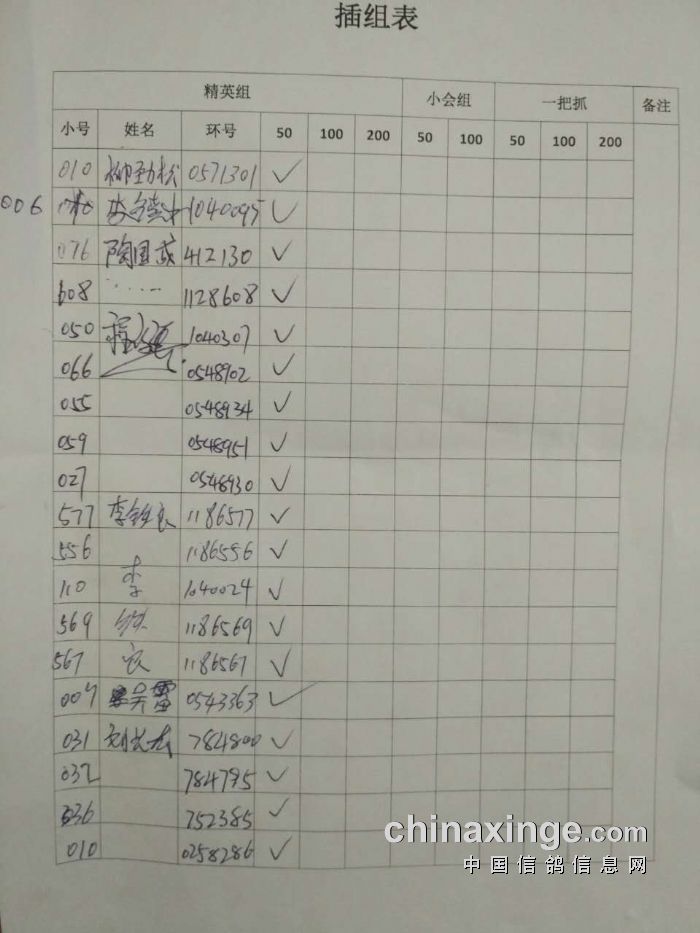 插组表
精英组 小会组 一把抓 备注
小号 姓名 环号 50 100 200 50 100 50 100 200
010 柳劲松 0571301 ✓
006 1040095 ✓
076 陶国成 412130 ✓
608 ..... 1128608 ✓
050 1040307 ✓
066 0548902 ✓
055 0548934 ✓
059 0548951 ✓
027 0548930 ✓
577 李铁良 1186577 ✓
556 1186556 ✓
110 李 1040024 ✓
569 铁 1186569 ✓
567 良 1186567 ✓
007 吴雷 0543363 ✓
031 784800 ✓
032 784795 ✓
036 752385 ✓
010 0258286 ✓
chinaxinge.com
中国信鸽信息网